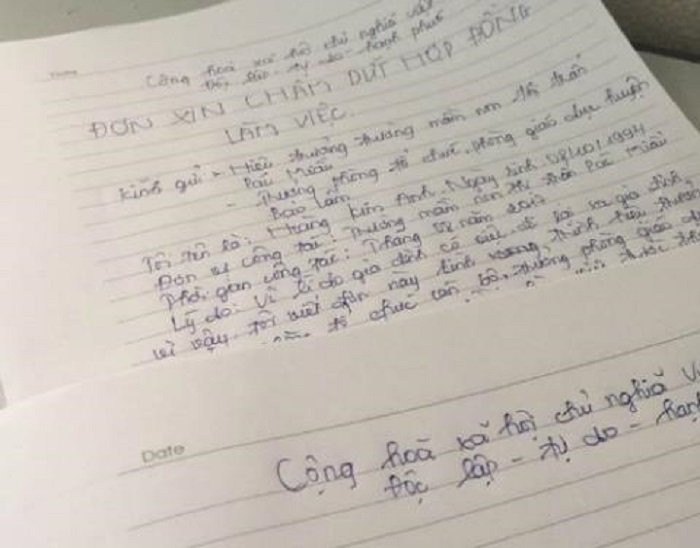 Cộng hoà xã hội chủ nghĩa việt
Độc lập - tự do - hạnh phúc
ĐƠN XIN CHẤM DỨT HỢP ĐỒNG
LÀM VIỆC.
Kính gửi - Hiệu trưởng trường mầm non thị trấn
Pác Miầu
- Trưởng phòng tổ chức, phòng giáo dục huyện
Bảo Lâm
Tôi tên là: Hoàng Kim Anh. Ngày sinh 08/10/1994
Đơn vị công tác: Trường mầm non thị trấn Pác Miầu
Thời gian công tác: Tháng năm
Lý do: Vì lí do gia đình có việc
vì vậy tôi viết đơn này kính mong, trình hiệu trưởng
tổ chức cán bộ, trưởng phòng giáo
Date
Cộng hoà xã hội chủ nghĩa Vi
Độc lập - tự do - hạnh